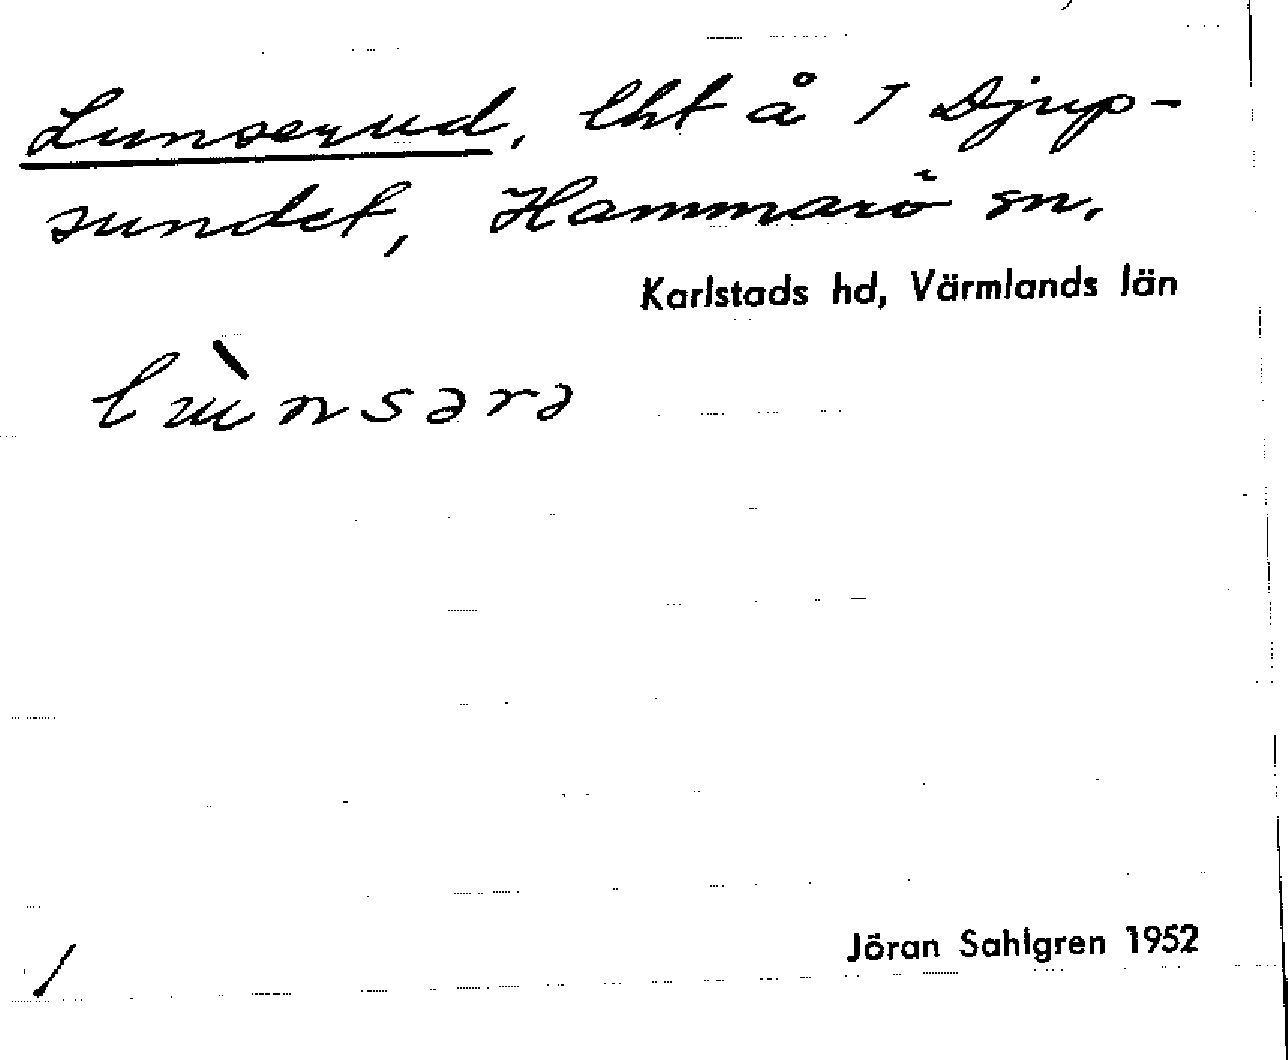 Lunserud, lht å 1 Djup-
sundet, Hammarö sn.
Karlstads hd, Värmlands län
lùnsərə
Jöran Sahlgren 1952
/